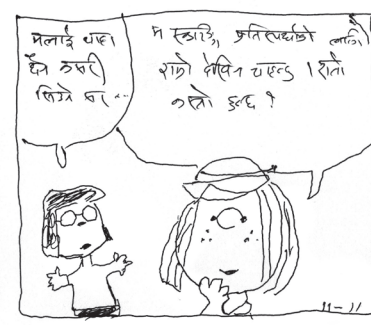 मलाई थाहा
छैन कसरी
सिउने सर ...
म स्केटिङ्ग प्रतिस्पर्धाको लागि
राम्रो देखिन चाहन्छु । रातो
कस्तो हुन्छ ?
11-11